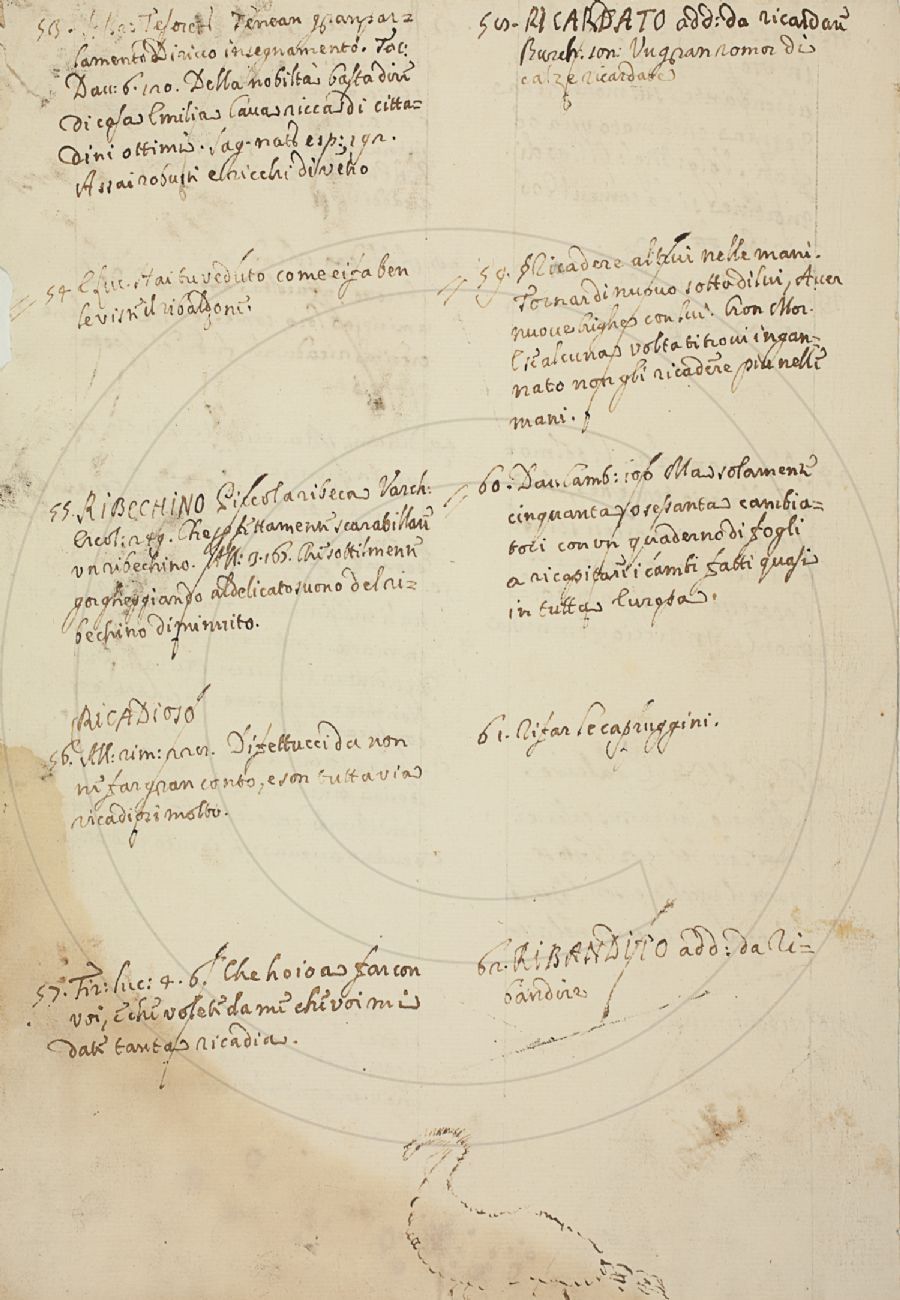 53. Tesoret. Tenean gran par-
lamento Di ricco insegnamento. Tac:
Dav: 6. 120. Della nobiltà basta dire
di casa Emilia cava ricca di citta-
dini ottimi. Sag. nat. esp: 192.
Assai robusti e ricchi di vetro
54. Hai tu veduto come ei sa ben
le visite il ribaldone.
55. RIBECHINO Piccola ribeca Varch:
Ercol: 249. Che perfettamente scarabillare
un ribechino. All: 3. 163. Che sottilmente
gorgheggiando al delicato suono del ri-
bechino diminuito.
RICADIOSO
56. All: rim: Difettucci da non
ne far gran conto, e son tuttavia
ricadiosi molto.
57. Fir: luc: 4. 6. Che ho io a far con
voi, e che volete da me che voi mi
date tanta ricadia.
58. RICARDATO add: da ricardare
Burch: son: Un gran romor di
calze ricardate
59. Ricadere altrui nelle mani.
Tornar di nuovo sotto di lui, Aver
nuove brighe con lui. Cron Mor.
Se alcuna volta ti trovi ingan-
nato non gli ricadere più nelle
mani.
60. Dav. camb: 106 Ma solamente
cinquanta, o sessanta cambia-
tori con un quaderno di fogli
a ricapitare i cambi fatti quasi
in tutta Europa.
61. Rifar le capruggini.
62. RIBANDITO add: da Ri-
bandire